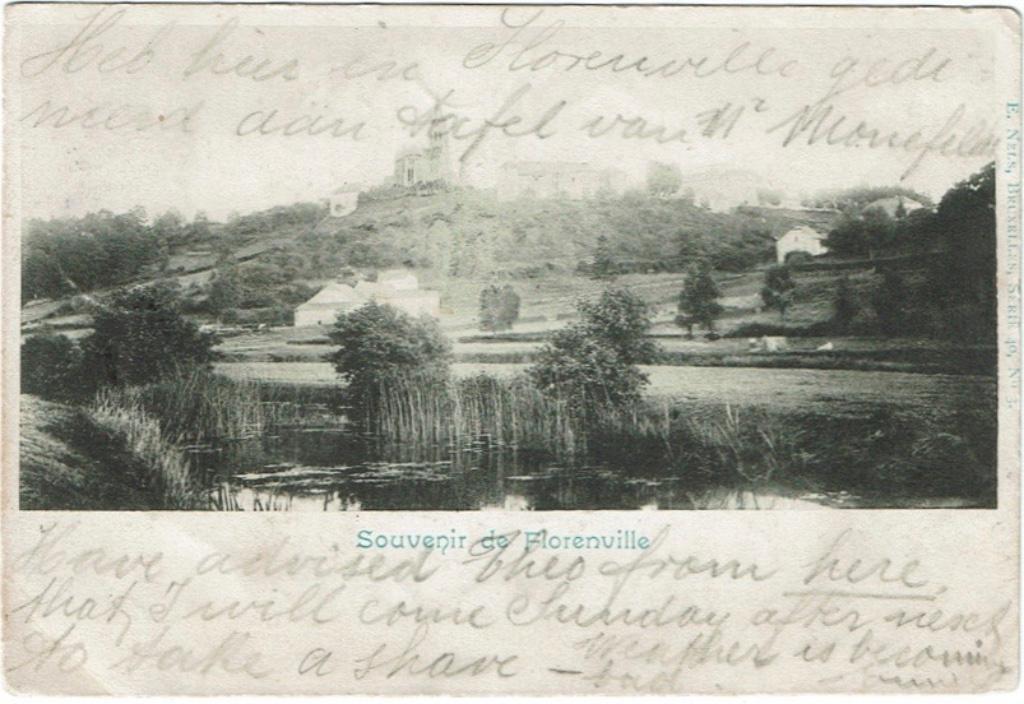 Heb hier in Florenville gedi-
neerd aan tafel van Mr
E. Nels, Bruxelles, Serie 40, No 3.
Souvenir de Florenville
Have advised Theo from here,
that, I will come Sunday after next
to take a share – Weather is becoming
bad.